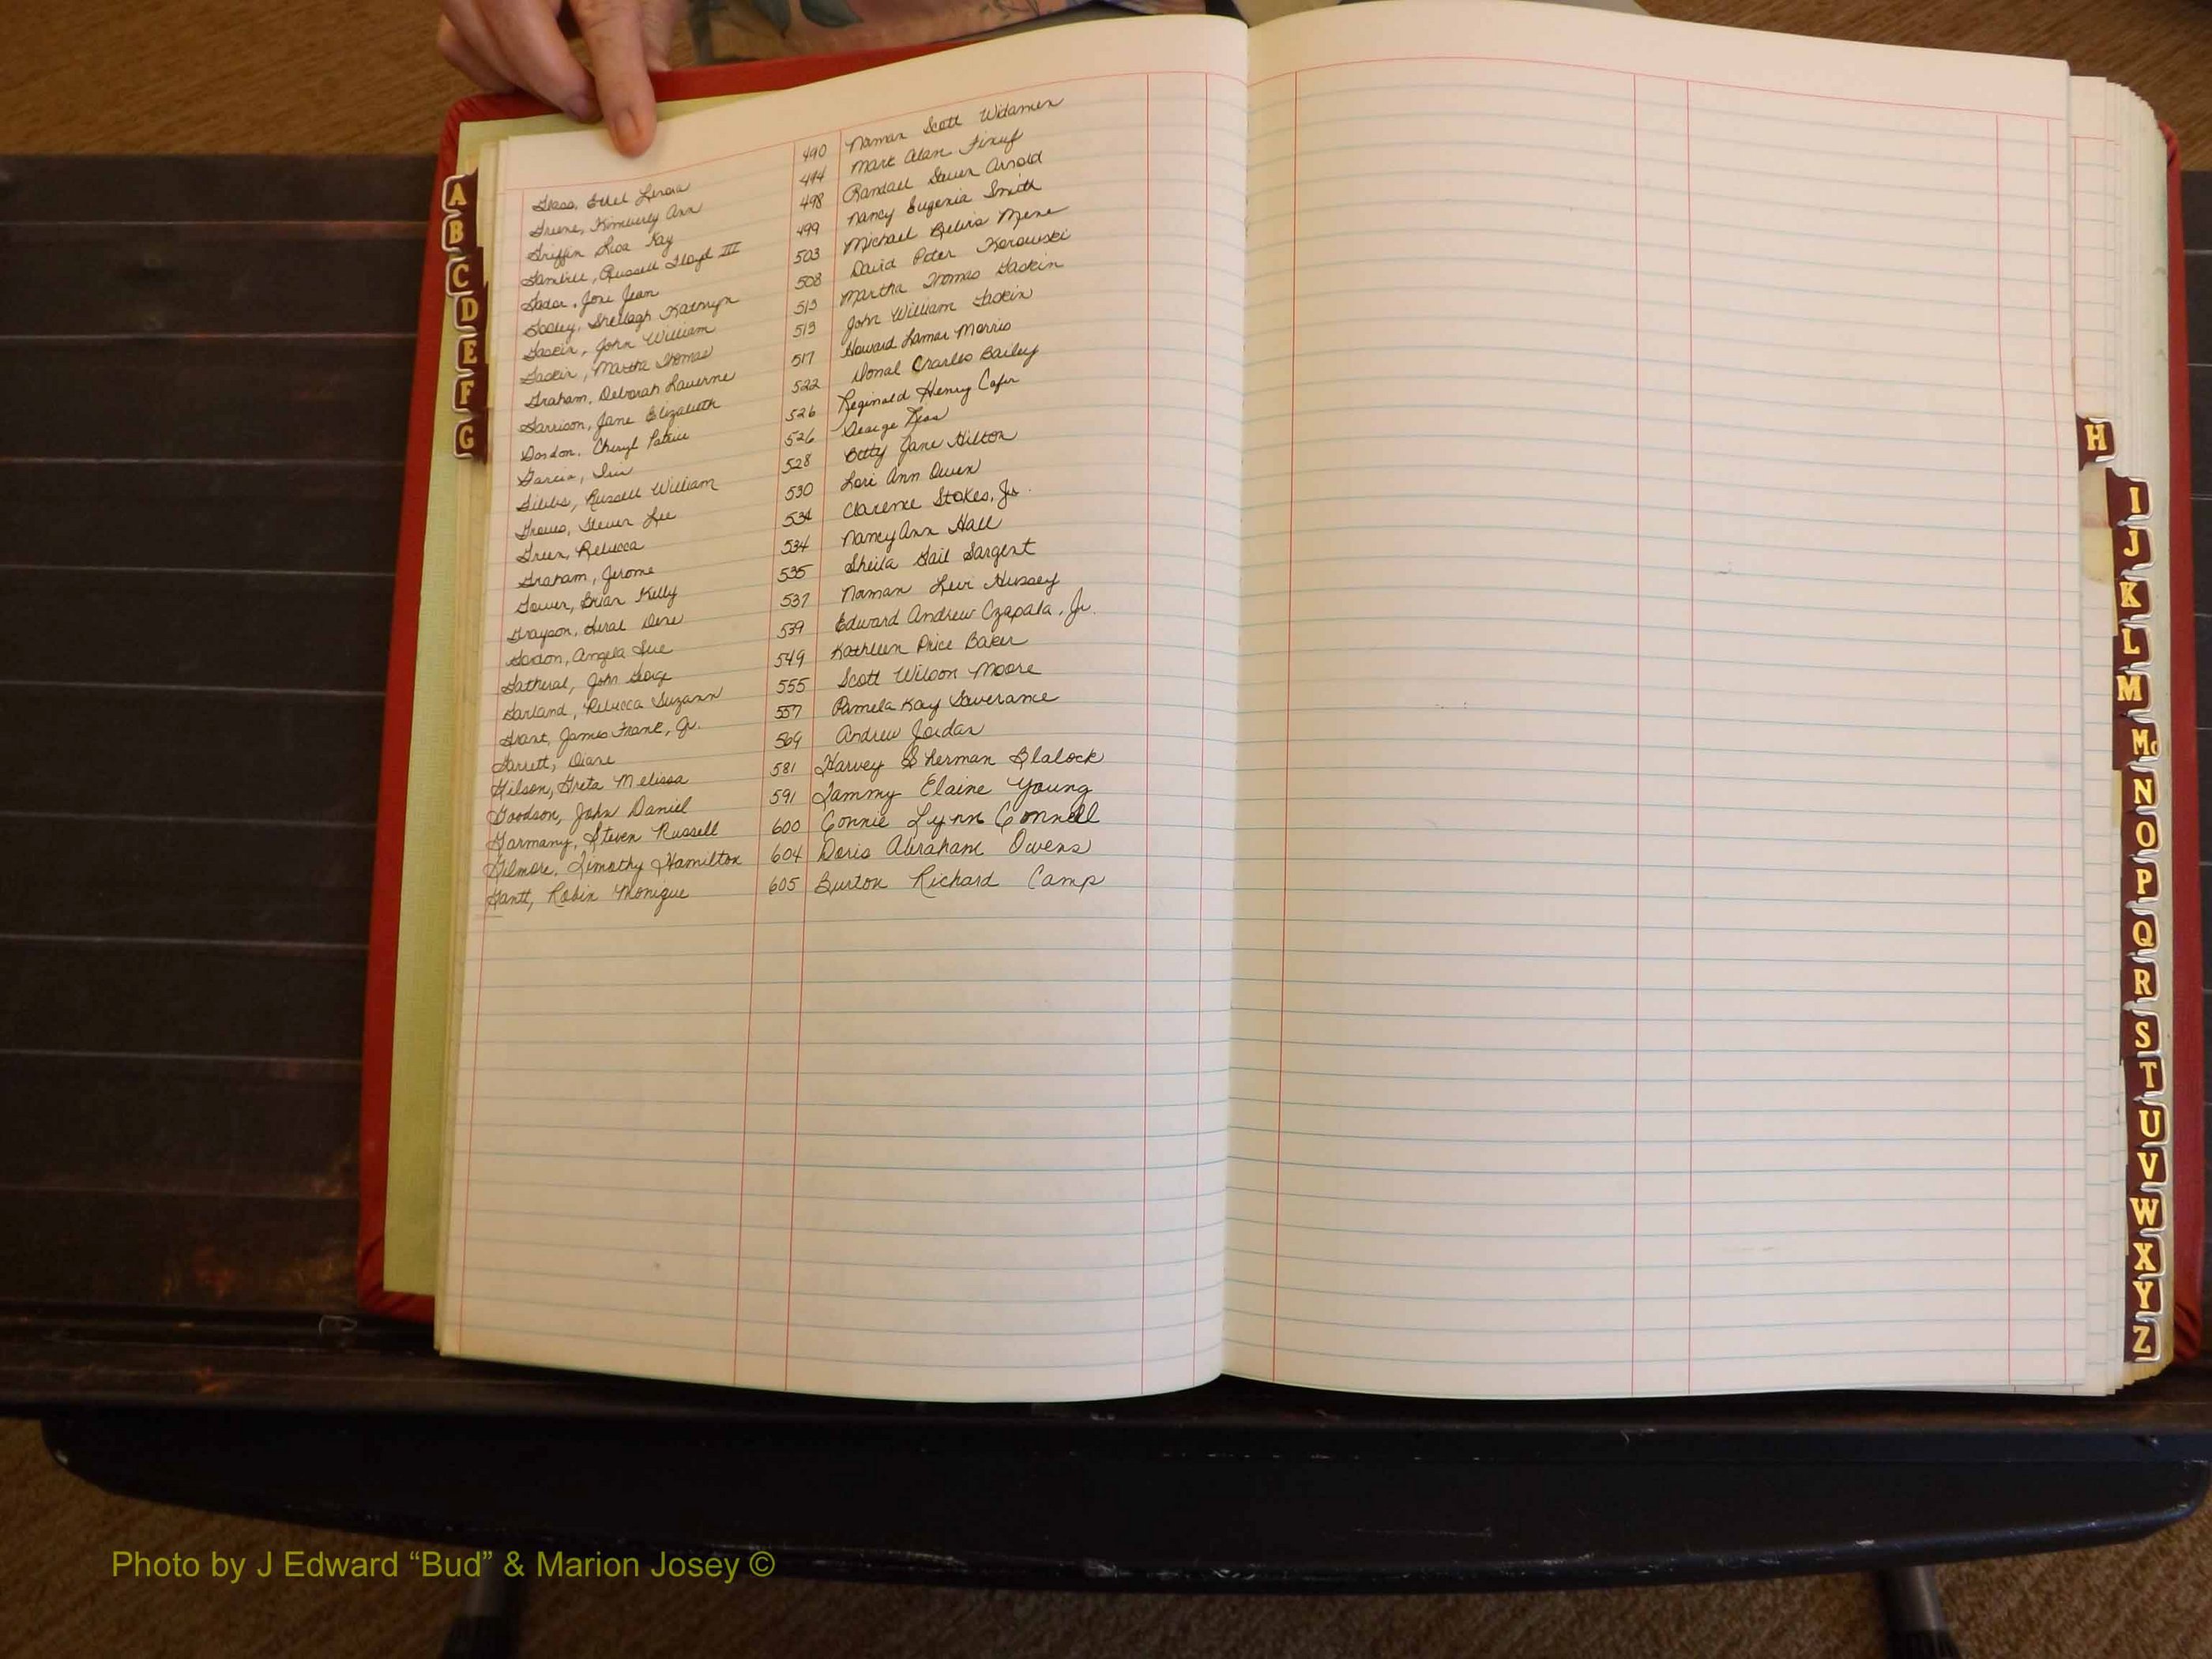 Gass, Ethel Lenora 490 Norman Scott Widamen
Greene, Kimberly Ann 494 Mark Alan Finuf
Griffin Lisa Kay 498 Randall Steven Arnold
Gambill, Russell Floyd III 499 Nancy Eugenia Smith
Gador, Joni Jean 503 Michael Mene
Gooley, Shellagh Kathryn 508 David Peter Korowski
Gaskin, John William 513 Martha Thomas Gaskin
Gaskin, Martha Thomas 513 John William Gaskin
Graham, Deborah Laverne 517 Howard Lamar Morris
Garrison, Jane Elizabeth 522 Donal Charles Bailey
Gordon, Cheryl Patrice 526 Reginald Henry Cafer
Garcia, Iris 526 George
Gibbs, Russell William 528 Betty Jane Hilton
Groves, Steven Lee 530 Lori Ann Owen
Green, Rebecca 534 Clarence Stokes, Jr.
Graham, Jerome 534 Nancy Ann Hall
Gower, Brian Kelly 535 Sheila Gail Sargent
Grayson, Dene 537 Norman Levi Hussey
Gordon, Angela Sue 539 Edward Andrew Czapala, Jr.
Gatheral, John George 549 Kathleen Price Baker
Garland, Rebecca Suzann 555 Scott Wilson Moore
Grant, James Frank, Jr. 557 Pamela Kay Severance
Garrett, Diane 569 Andrew Jordan
Gilson, Greta Melissa 581 Harvey Sherman Blalock
Goodson, John Daniel 591 Tammy Elaine Young
Garmany, Steven Russell 600 Connie Lynn Connell
Gilmore, Timothy Hamilton 604 Doris Abraham Owens
Gantt, Robin Monique 605 Burton Richard Camp
A
B
C
D
E
F
G
H
I
J
K
L
M
Mc
N
O
P
Q
R
S
T
U
V
W
X
Y
Z
Photo by J Edward “Bud” & Marion Josey ©